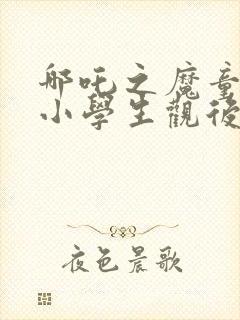 哪吒之魔童
小學生觀後
夜色晨歌